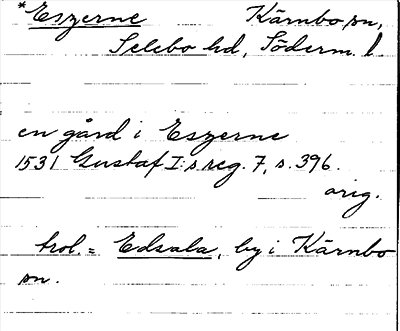 *Eszerne Kärnbo sn,
Selebo hd, Söderm. l
en gård i Eszerne
1531 Gustaf I:s reg. 7, s. 396.
orig.
trol. = Edsala, by i Kärnbo
sn.